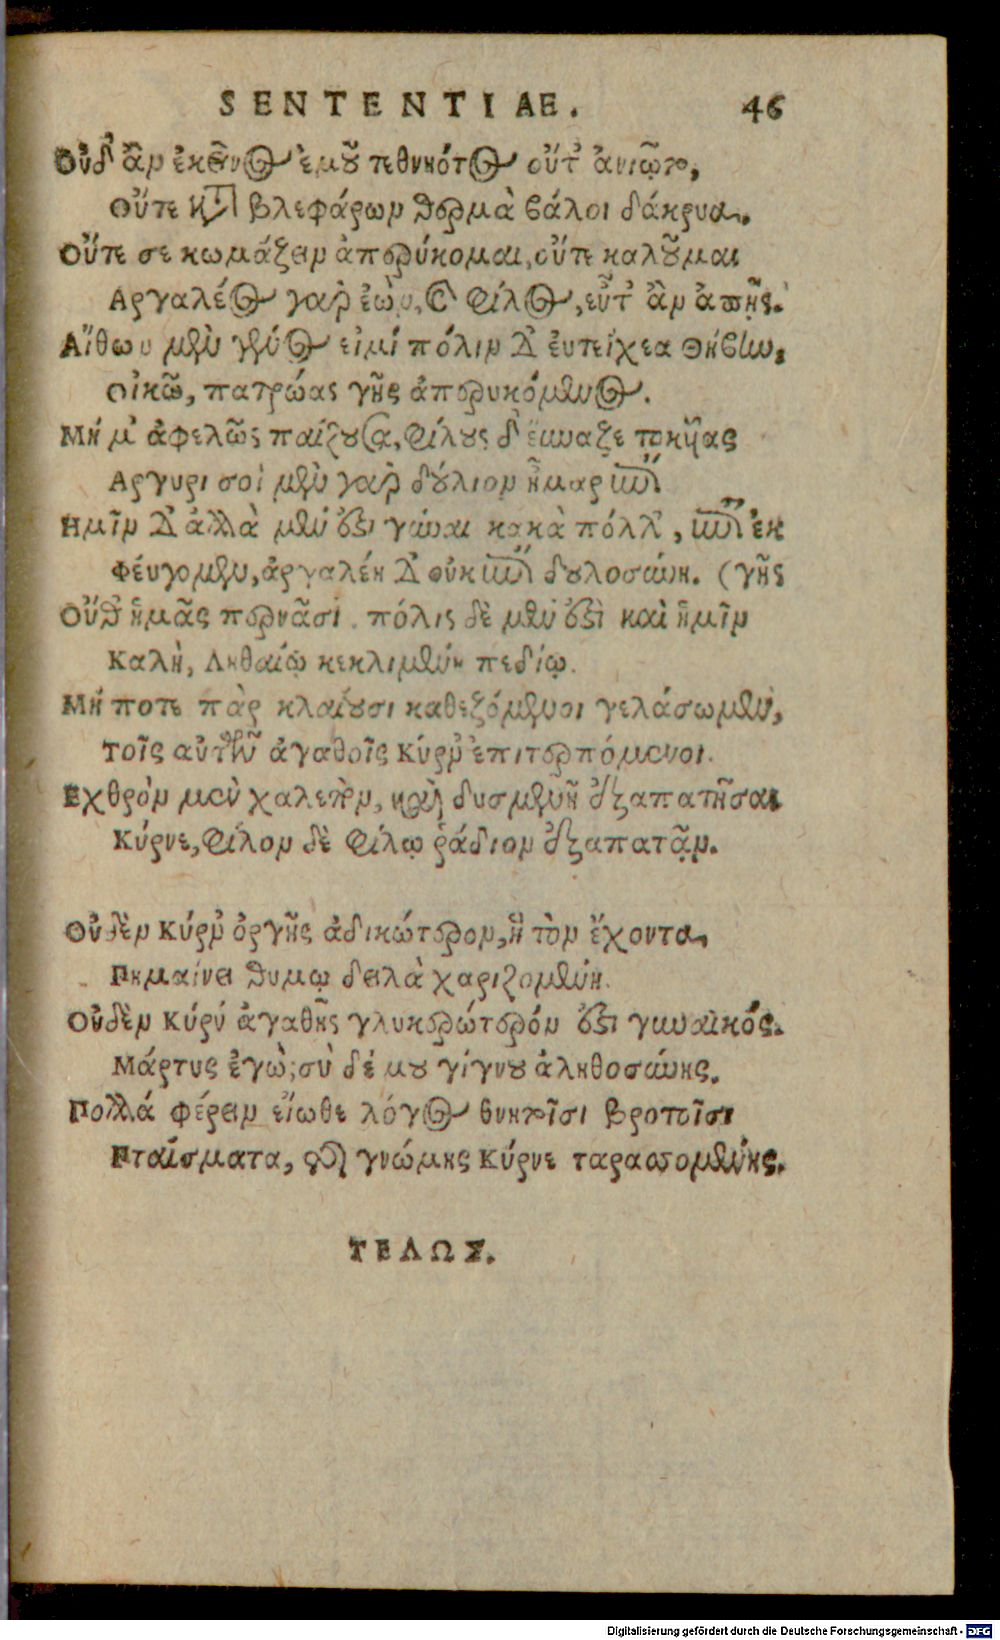 SENTENTIAE. 46
Οὐδ' ἂν ἐκεῖνος ἐμοῦ τεθνηκότος οὔτ' ἀνιῷτο,
Οὔτε κατὰ βλεφάρων θερμὰ βάλοι δάκρυα.
Οὔτε σε κωμάζειν ἀπερύκομαι, οὔτε καλοῦμαι
Αργαλέος γὰρ ἐὼν, καὶ φίλος, εὖτ' ἂν ἀπῇς.
Αἴθων μὲν γένος εἰμί πόλιν δ' ἐυτείχεα Θήβην,
Οἰκῶ, πατρώας γῆς ἀπερυκόμενος.
Μή μ' ἀφελῶς παίζουσα, φίλους δ' ἔνναζε τοκῆας
Αργυρι σοὶ μὲν γὰρ δούλιον ἦμαρ ἔπι
Ημῖν δ' ἀλλὰ μέν ἐστι γύναι κακὰ πόλλ', ἐπεὶ ἐκ
Φεύγομεν, ἀργαλέη δ' οὐκ ἔπι δουλοσύνη. (γῆς
Οὔθ' ἡμᾶς περνᾶσι. πόλις δὲ μέν ἐστὶ καὶ ἡμῖν
Καλὴ, Ληθαίῳ κεκλιμένη πεδίῳ.
Μή ποτε πὰρ κλαίουσι καθεζόμενοι γελάσωμεν,
Τοῖς αὐτῶν ἀγαθοῖς Κύρν' ἐπιτερπόμενοι.
Εχθρὸν μὲν χαλεπὸν, καὶ δυσμενῆ ἐξαπατῆσαι
Κύρνε, φίλον δὲ φίλῳ ῥάδιον ἐξαπατᾷν.
Οὐδὲν Κύρν' ὀργῆς ἀδικώτερον, ἣ τὸν ἔχοντα,
Πημαίνει θυμῳ δειλὰ χαριζομένη.
Οὐδὲν Κύρν' ἀγαθῆς γλυκερώτερόν ἐστι γυναικός.
Μάρτυς ἐγὼ; σὺ δέ μου γίγνου ἀληθοσύνης.
Πολλά φέρειν εἴωθε λόγος θνητοῖσι βροτοῖσι
Πταίσματα, περὶ γνώμης Κύρνε ταρασσομένης.
ΤΕΛΩΣ.
Digitalisierung gefördert durch die Deutsche Forschungsgemeinschaft - DFG